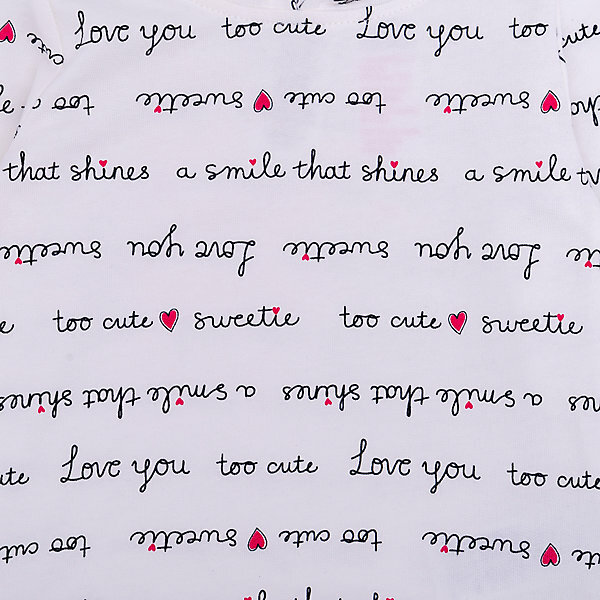 cute Love you too cute Love you too cute
too cute sweetie too cute sweetie
that shines a smile that shines a smile
sweetie Love you sweetie Love you
too cute sweetie too cute sweetie
a smile that shines a smile that shines
Love you too cute Love you too cute
sweetie too cute sweetie too cute